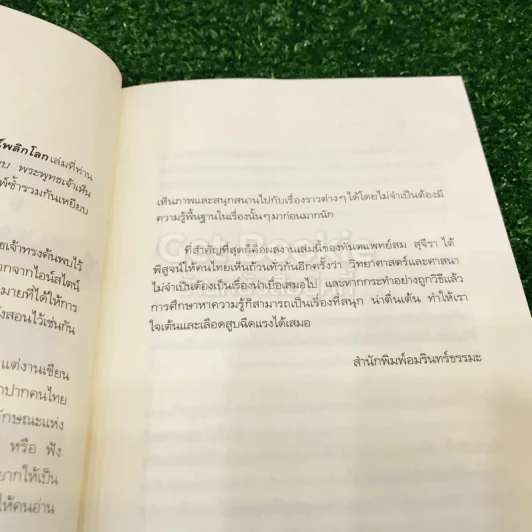 พลิกโลก เล่มที่ท่าน
พระพุทธเจ้าเห็น
พ์ซ้ำรวมกันเหยียบ
ธเจ้าทรงค้นพบไว้
กจากไอน์สไตน์
มายที่ได้ให้การ
ังสอนไว้เช่นกัน
แต่งานเขียน
าปากคนไทย
ักษณะแห่ง
หรือ ฟัง
ยากให้เป็น
ให้คนอ่าน
เห็นภาพและสนุกสนานไปกับเรื่องราวต่างๆ ได้โดยไม่จำเป็นต้องมี
ความรู้พื้นฐานในเรื่องนั้นๆ มาก่อนมากนัก
ที่สำคัญที่สุดก็คือผลงานเล่มนี้ของทันตแพทย์สม สุจีรา ได้
พิสูจน์ให้คนไทยเห็นถ้วนทั่วกันอีกครั้งว่า วิทยาศาสตร์และศาสนา
ไม่จำเป็นต้องเป็นเรื่องน่าเบื่อเสมอไป และหากกระทำอย่างถูกวิธีแล้ว
การศึกษาหาความรู้ก็สามารถเป็นเรื่องที่สนุก น่าตื่นเต้น ทำให้เรา
ใจเต้นและเลือดสูบฉีดแรงได้เสมอ
สำนักพิมพ์อมรินทร์ธรรมะ